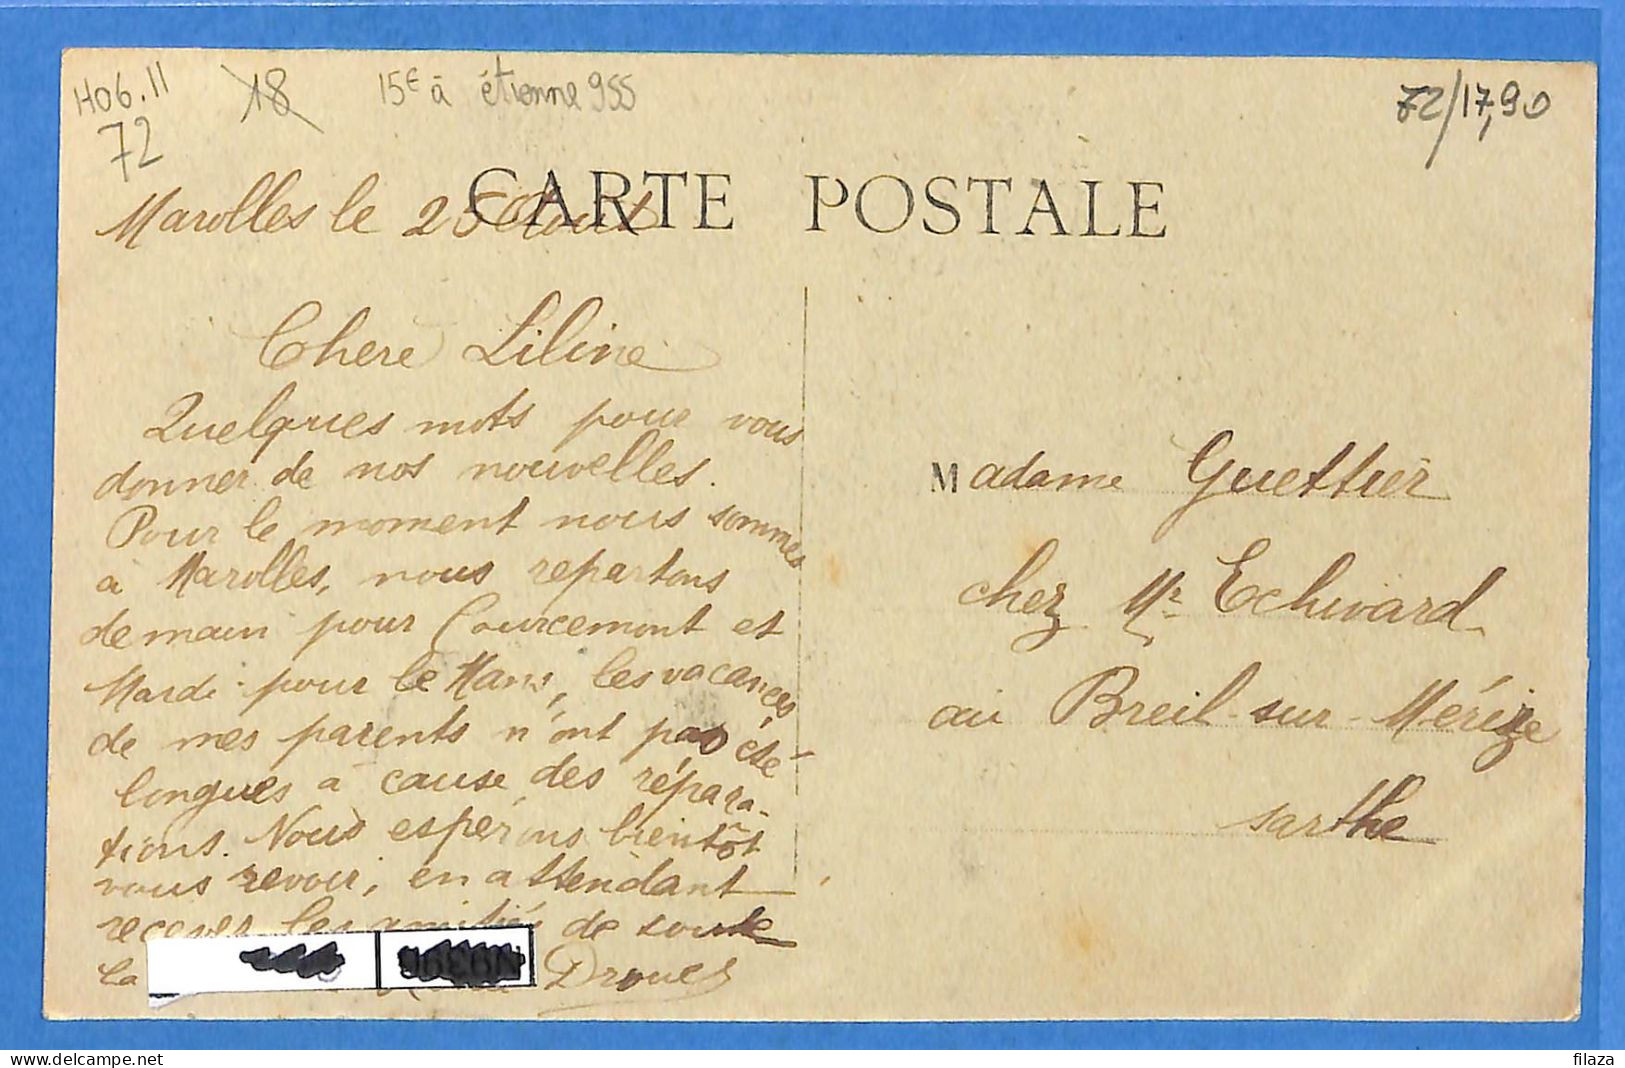 H06.11
18
15€ à étienne955
72/17,90
72
CARTE POSTALE
Marolles le 25 Aout
Chere Liline
Quelques mots pour vous
donner de nos nouvelles.
Pour le moment nous sommes
a Marolles, nous repartons
demain pour Courcemont et
Mardi pour le Mans, les vacances
de mes parents n'ont pas été
longues a cause des répara-
tions. Nous espérons bientôt
vous revoir, en attendant
recevez les amitiés de toute
la
Drouet
Madame Guettier
chez Mr Echivard
au Breil-sur-Mérize
Sarthe
filaza